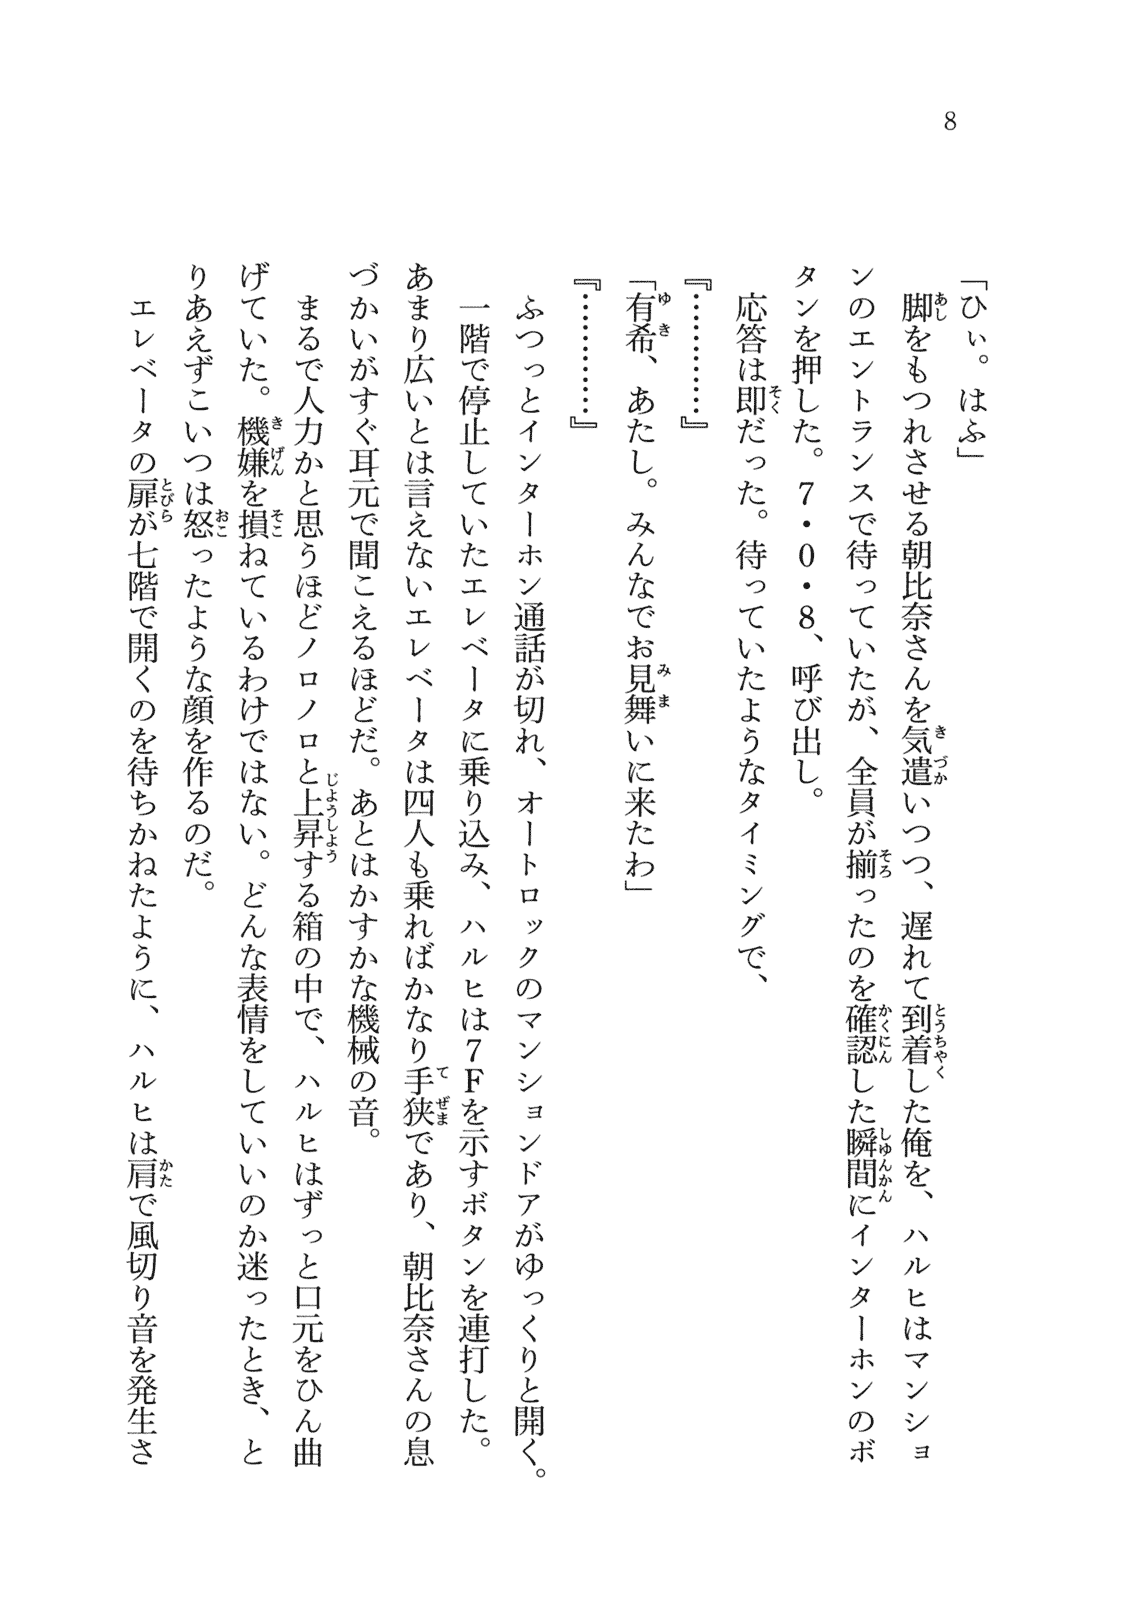 8
「ひぃ。はふ」
脚をもつれさせる朝比奈さんを気遣いつつ、遅れて到着した俺を、ハルヒはマンショ
ンのエントランスで待っていたが、全員が揃ったのを確認した瞬間にインターホンのボ
タンを押した。7・0・8、呼び出し。
応答は即だった。待っていたようなタイミングで、
『…………』
「有希、あたし。みんなでお見舞いに来たわ」
『…………』
ふつっとインターホン通話が切れ、オートロックのマンションドアがゆっくりと開く。
一階で停止していたエレベータに乗り込み、ハルヒは7Fを示すボタンを連打した。
あまり広いとは言えないエレベータは四人も乗ればかなり手狭であり、朝比奈さんの息
づかいがすぐ耳元で聞こえるほどだ。あとはかすかな機械の音。
まるで人力かと思うほどノロノロと上昇する箱の中で、ハルヒはずっと口元をひん曲
げていた。機嫌を損ねているわけではない。どんな表情をしていいのか迷ったとき、と
りあえずこいつは怒ったような顔を作るのだ。
エレベータの扉が七階で開くのを待ちかねたように、ハルヒは肩で風切り音を発生さ